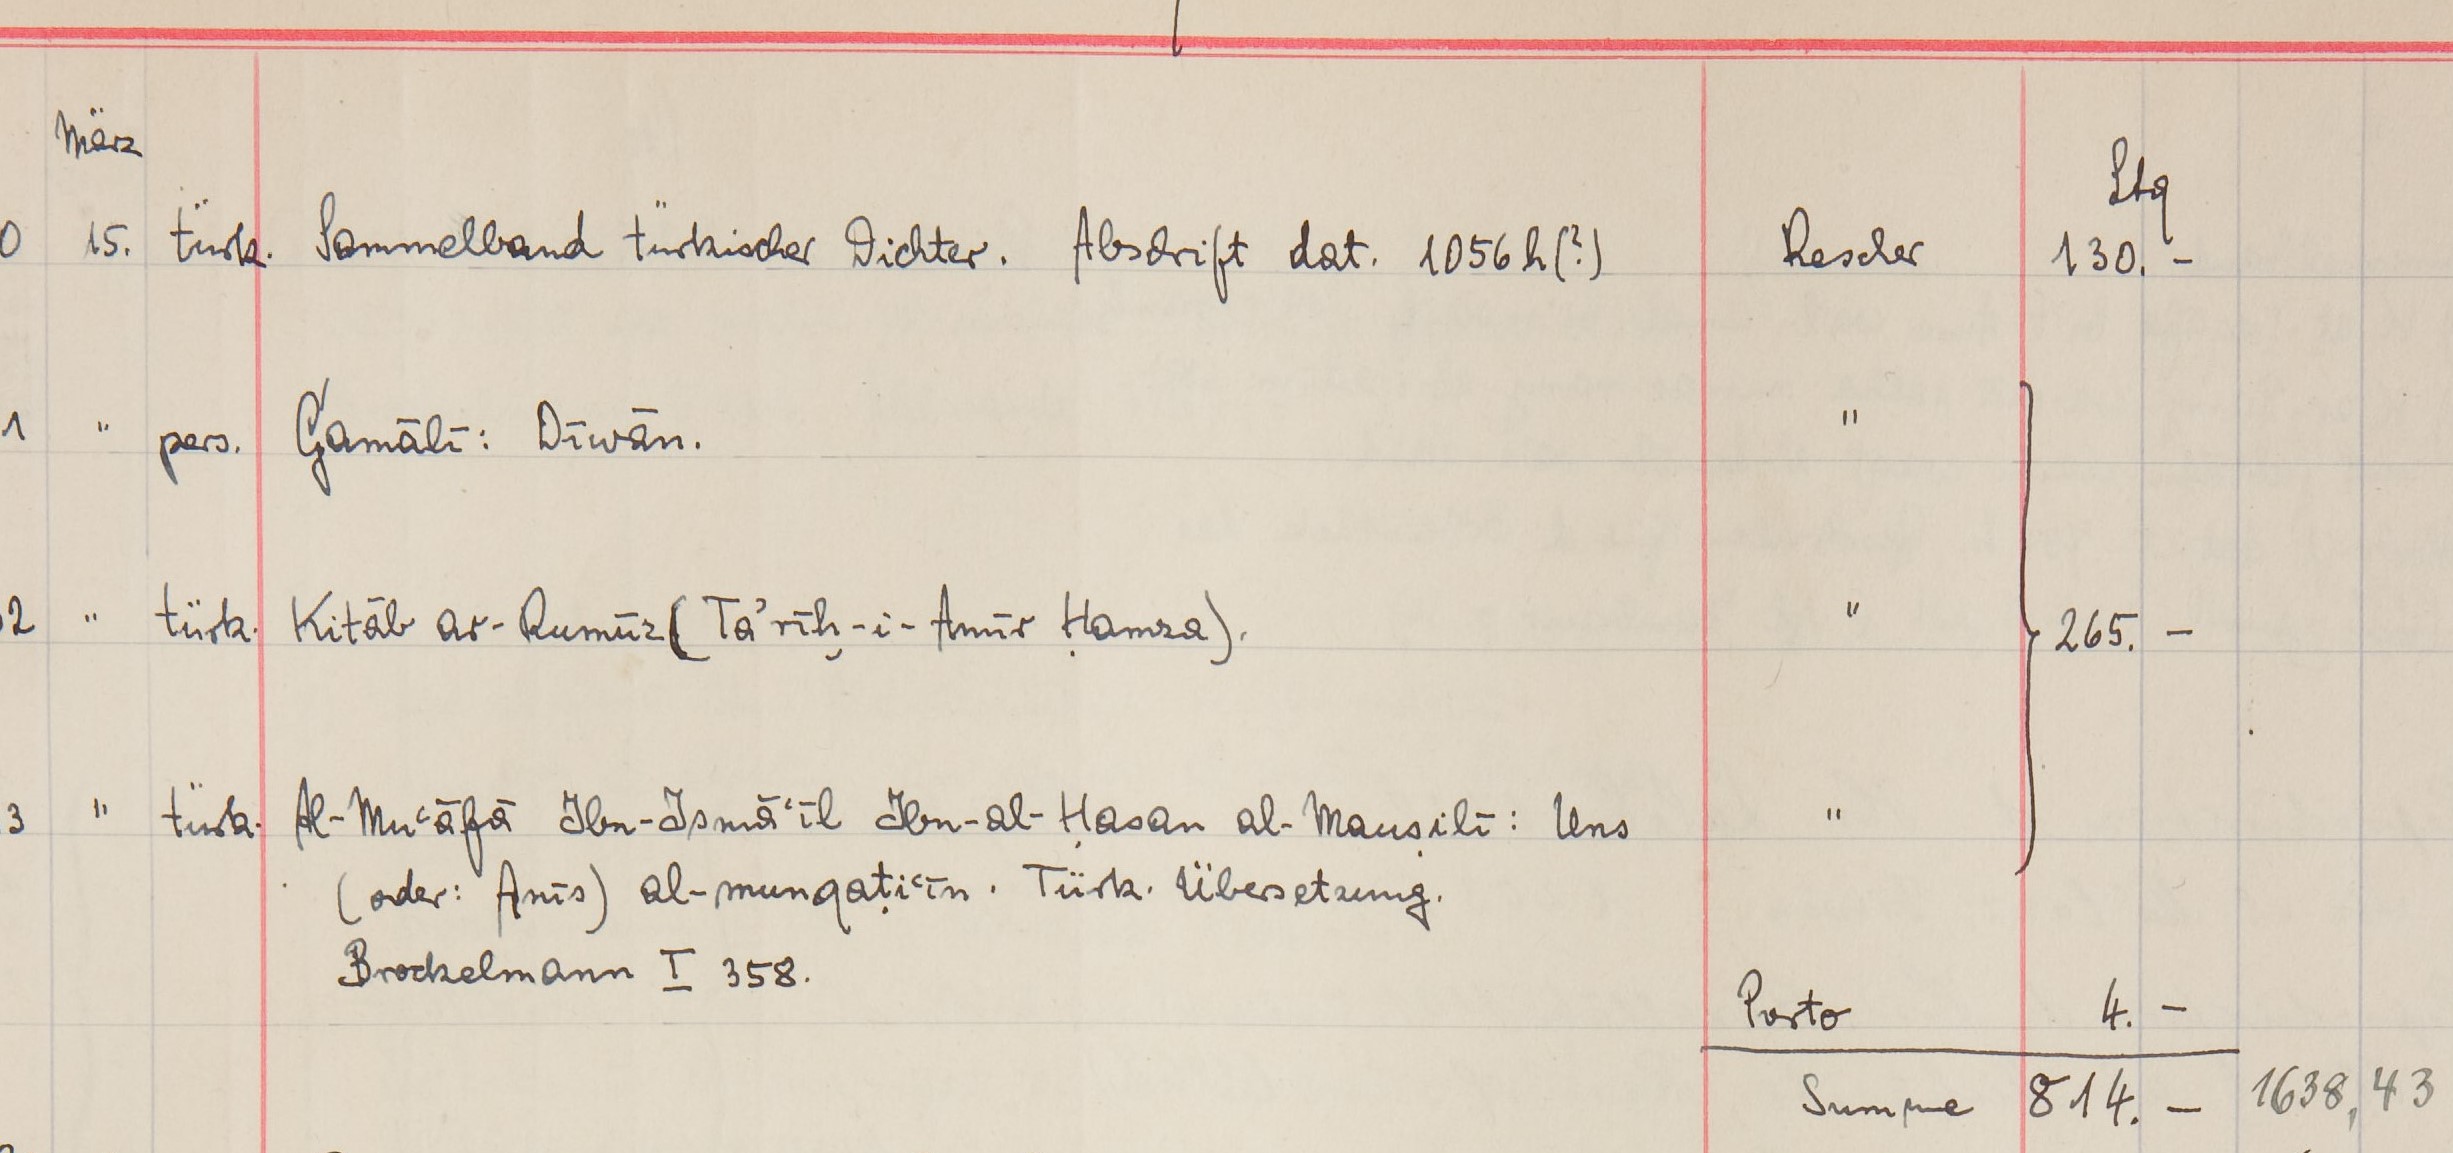 März
Ltq
0 15. türk. Sammelband türkischer Dichter. Abschrift dat. 1056 h (?) Rescher 130. -
1 " pers. Ǧamālī: Dīwān. "
2 " türk. Kitāb ar-Rumūz (Ta'rīḫ-i-Amīr Ḥamza). " 265. -
3 " türk. Al-Mu‘āfā Ibn-Ismā‘īl Ibn-al-Ḥasan al-Mauṣilī: Uns "
(oder: Anīs) al-munqaṭi‘īn. Türk. Übersetzung.
Brockelmann I 358.
Porto 4. -
Summe 814. - 1638,43